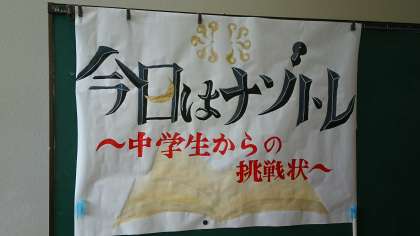 今日はナゾトレ
～中学生からの
挑戦状～